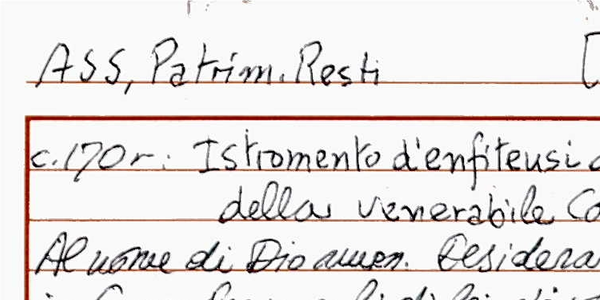 ASS, Patrim. Resti [
c. 170 r: Istromento d'enfiteusi
della venerabile Co
Al nome di Dio amen. Desidera